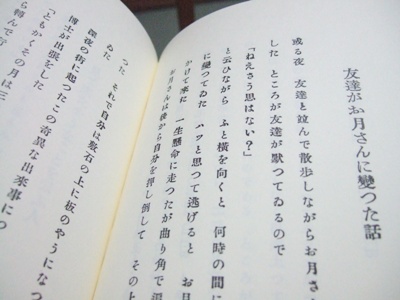 友達がお月さんに變つた話
或る夜 友達と竝んで散歩しながらお月さ
した ところが友達が默つてゐるので
「ねえさう思はない?」
と云ひながら ふと横を向くと 何時の間に
に變つてゐた ハッと思つて逃げると お月
かけて來た 一生懸命に走つたが曲り角で
お月さんは後から自分を押し倒して その上
つた それで自分は敷石の上に板のやうになつ
ゐた
深夜の街に起つたこの奇異な出來事につ
博士が出張をした
「ともかくその月は三
轉んで行